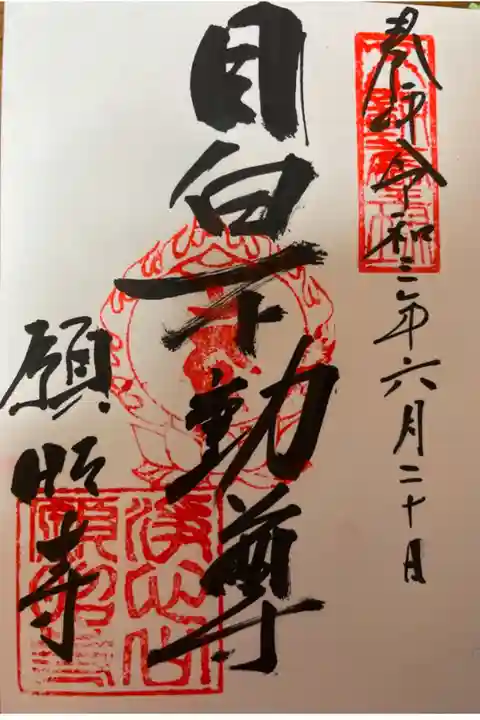 奉拝 令和三年六月二十日
目白不動尊
願昭寺